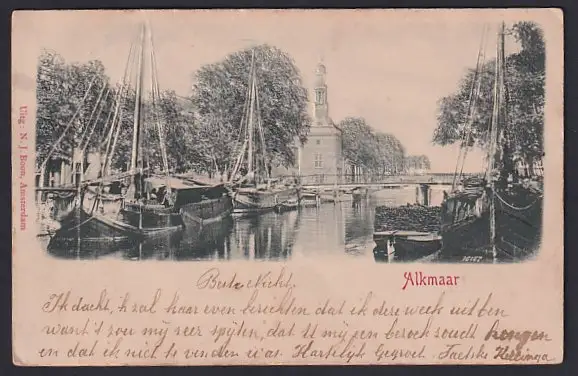 Uitg: N. J. Boon, Amsterdam
Alkmaar
Beste Nicht,
Ik dacht, ik zal haar even berichten dat ik deze week uit ben
want 't zou mij zeer spijten, dat U mij een bezoek zoudt brengen
en dat ik niet te vinden was. Hartelijk Gegroet